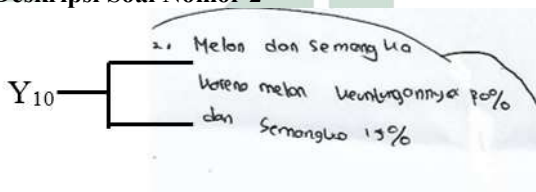 Deskripsi Soal Nomor 2
2. Melon dan semangka
Y10
karena melon keuntungannya 20%
dan semangka 15%